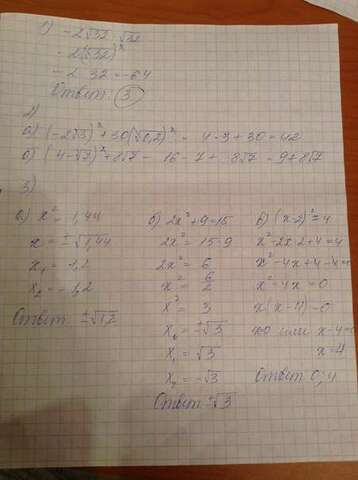 1) -2√32 · √32
- 2(√32)²
- 2 · 32 = -64
Ответ (3)
2)
а) (-2√3)² + 30(√1,2)² = 4 · 3 + 30 = 42
б) (4-√7)² + 8√7 = 16 - 7 + 8√7 = 9 + 8√7
3)
а) x² = 1,44
x = ±√1,44
x₁ = 1,2
x₂ = -1,2
Ответ ±√1,2
б) 2x² + 9 = 15
2x² = 15 - 9
2x² = 6
x² = 6/2
x² = 3
x = ±√3
x₁ = √3
x₂ = -√3
Ответ ±√3
в) (x-2)² = 4
x² - 2x·2 + 4 = 4
x² - 4x + 4 - 4 = 0
x² - 4x = 0
x(x-4) = 0
x=0 или x-4=0
x = 4
Ответ 0; 4